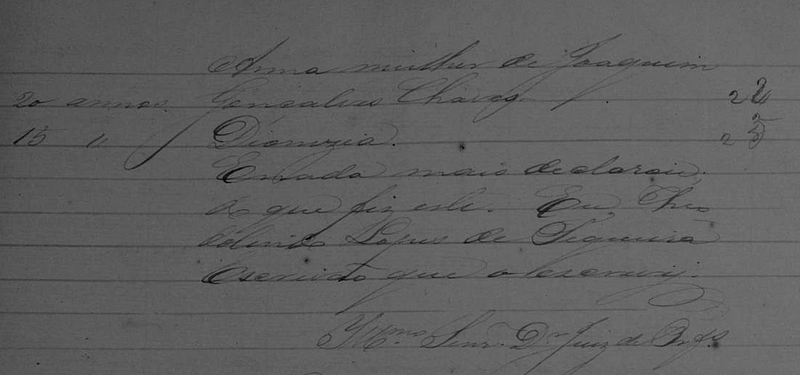 Anna mulher de Joaquim
20 annos. Gonsalves Chaves. 24
15 " Dionizia. 25
E nada mais declarou.
do que fiz este. Eu, Theo
dolindo Lopes de Siqueira
Escrivão que o escrevy.
Illmo Senr. Dr. Juiz de